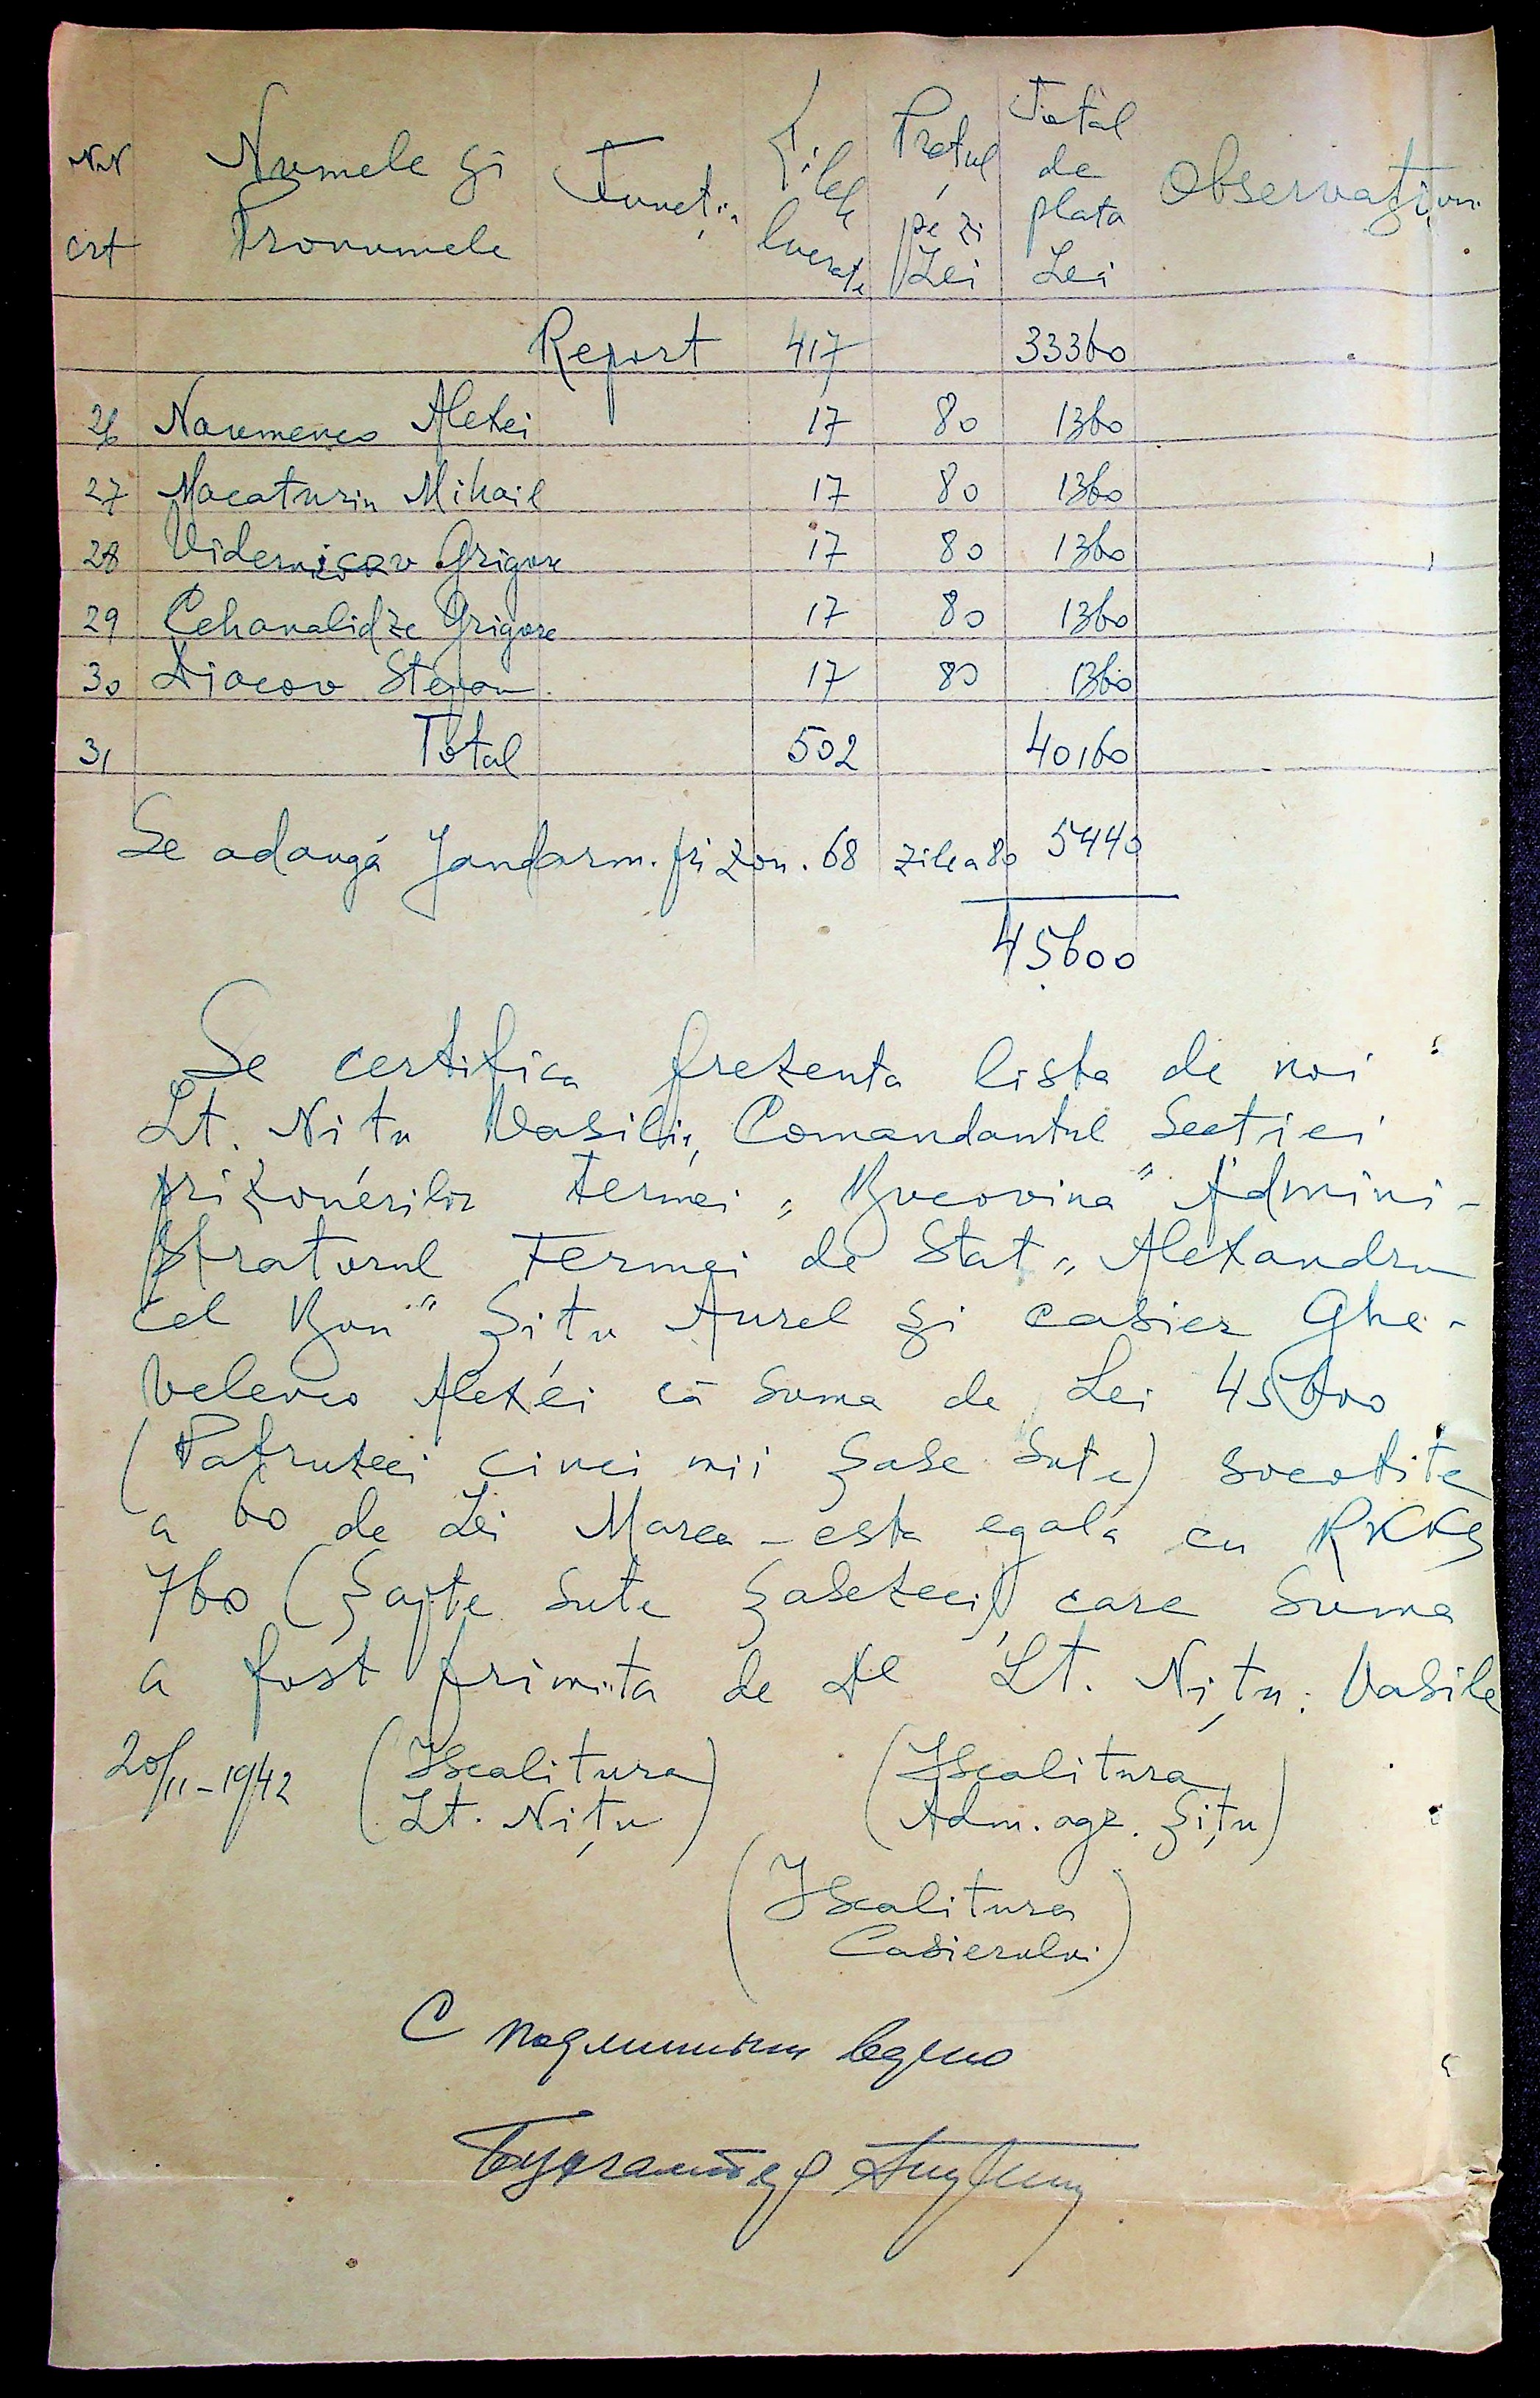 NN crt Numele și Pronumele Funcția Zilele lucrate Prețul pe zi Lei Total de plata Lei Observațiuni
Report 417 33360
26 Naumenco Alexei 17 80 1360
27 Macaturin Mihail 17 80 1360
28 Vidernicov Grigore 17 80 1360
29 Cehanalidze Grigore 17 80 1360
30 Diacov Stepan 17 80 1360
31 Total 502 40160
Se adaugă Jandarm. prizon. 68 zile a 80 5440
45600
Se certifica prezenta lista de noi
Lt. Nitu Vasilie, Comandantul Sectiei
prizonérilor fermei „Bucovina" Admini-
stratorul Fermei de Stat „Alexandru
cel Bun" Șitu Aurel și casier Ghe-
velenco Alexéi că suma de Lei 45600
(Patruzeci cinci mii șase sute) socotite
a 60 de Lei Marca - esta egală cu RKKS
760 (Șapte sute șasezeci), care suma
a fost primita de Dl Lt. Nițu. Vasile
20/II-1942 (Iscalitura (Iscalitura
Lt. Nițu) Adm. agr. Șițu)
(Iscalitura
Casierului)
С подлинным верно
Бухгалтер